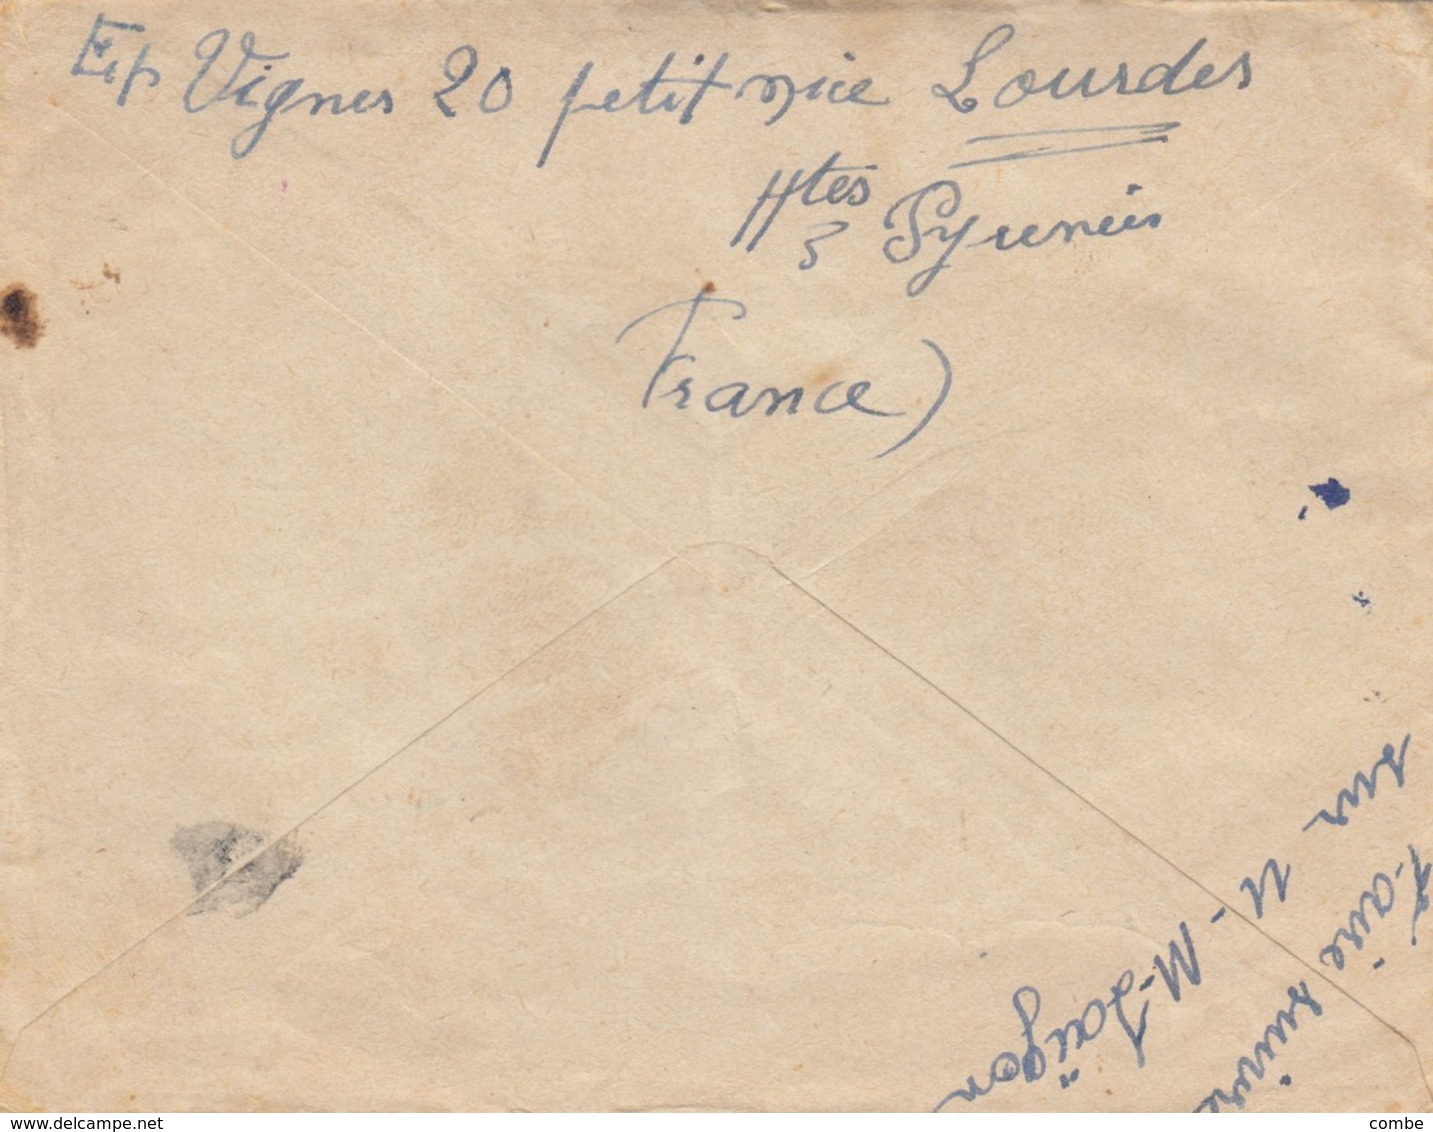 Exp Vignes 20 petit nice Lourdes
Htes Pyrénées
France)
Faire suivre
sur U-M-Saïgon
www.delcampe.net
combe